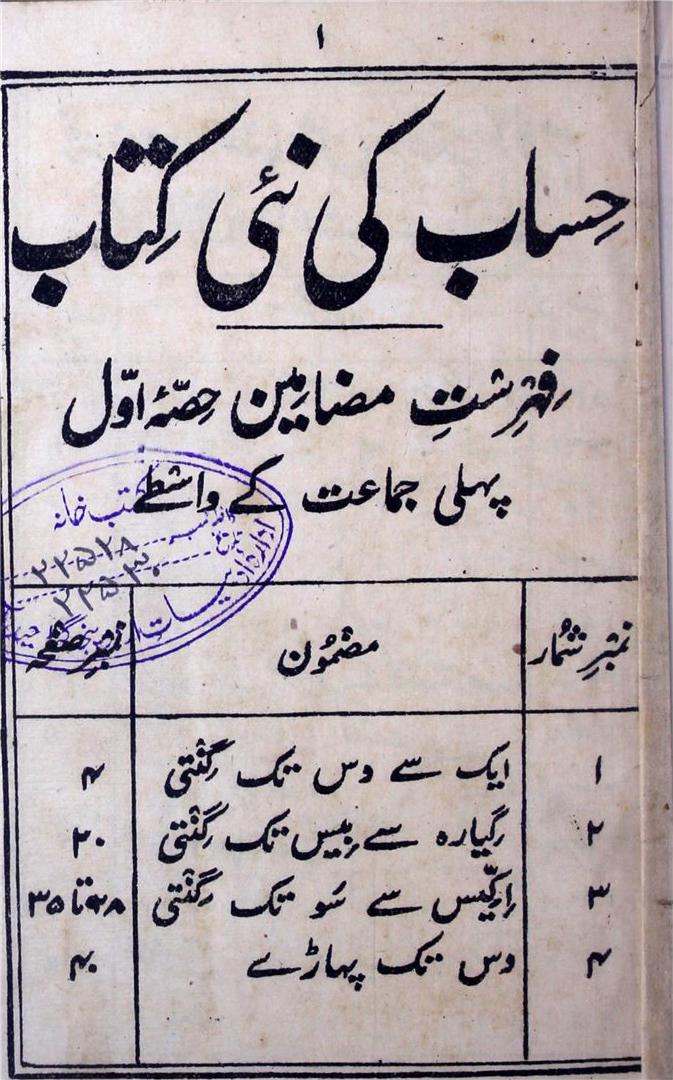 ۱
حِساب کی نئی کِتاب
فِہرِستِ مضامِین حِصّۂ اوّل
پہلی جماعت کے واسطے
کتب خانہ
۲۲۵۲۸
نمبرِ شُمار مضمُون نمبرِ صفحہ
۱ ایک سے دس تک گِنْتی ۴
۲ گیارہ سے بِیس تک گِنْتی ۲۰
۳ اِکّیس سے سَو تک گِنْتی ۲۸ تا ۳۵
۴ دس تک پہاڑے ۴۰